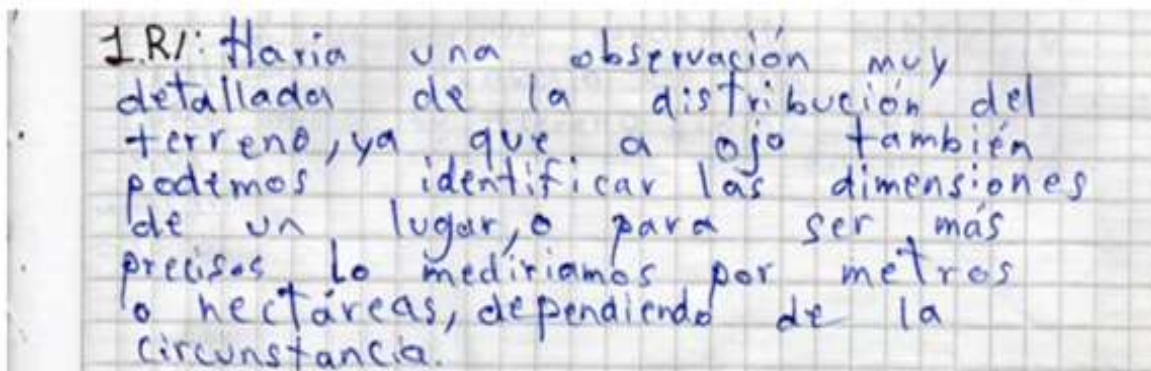 1.R/: Haria una observación muy
detallada de la distribución del
terreno, ya que a ojo también
podemos identificar las dimensiones
de un lugar, o para ser más
precisos lo mediriamos por metros
o hectáreas, dependiendo de la
circunstancia.